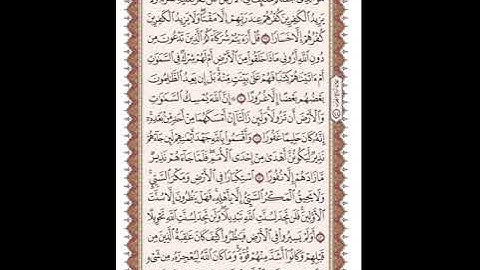 يَزِيدُ ٱلْكَٰفِرِينَ كُفْرُهُمْ عِندَ رَبِّهِمْ إِلَّا مَقْتًا وَلَا يَزِيدُ ٱلْكَٰفِرِينَ
كُفْرُهُمْ إِلَّا خَسَارًا ٣٩ قُلْ أَرَءَيْتُمْ شُرَكَآءَكُمُ ٱلَّذِينَ تَدْعُونَ مِن
دُونِ ٱللَّهِ أَرُونِى مَاذَا خَلَقُوا۟ مِنَ ٱلْأَرْضِ أَمْ لَهُمْ شِرْكٌ فِى ٱلسَّمَٰوَٰتِ
أَمْ ءَاتَيْنَٰهُمْ كِتَٰبًا فَهُمْ عَلَىٰ بَيِّنَتٍ مِّنْهُ بَلْ إِن يَعِدُ ٱلظَّٰلِمُونَ
بَعْضُهُم بَعْضًا إِلَّا غُرُورًا ٤٠ ۞ إِنَّ ٱللَّهَ يُمْسِكُ ٱلسَّمَٰوَٰتِ
وَٱلْأَرْضَ أَن تَزُولَا وَلَئِن زَالَتَآ إِنْ أَمْسَكَهُمَا مِنْ أَحَدٍ مِّنۢ بَعْدِهِۦٓ
إِنَّهُۥ كَانَ حَلِيمًا غَفُورًا ٤١ وَأَقْسَمُوا۟ بِٱللَّهِ جَهْدَ أَيْمَٰنِهِمْ لَئِن جَآءَهُمْ
نَذِيرٌ لَّيَكُونُنَّ أَهْدَىٰ مِنْ إِحْدَى ٱلْأُمَمِ فَلَمَّا جَآءَهُمْ نَذِيرٌ
مَّا زَادَهُمْ إِلَّا نُفُورًا ٤٢ ٱسْتِكْبَارًا فِى ٱلْأَرْضِ وَمَكْرَ ٱلسَّيِّئِ
وَلَا يَحِيقُ ٱلْمَكْرُ ٱلسَّيِّئُ إِلَّا بِأَهْلِهِۦ فَهَلْ يَنظُرُونَ إِلَّا سُنَّتَ
ٱلْأَوَّلِينَ فَلَن تَجِدَ لِسُنَّتِ ٱللَّهِ تَبْدِيلًا وَلَن تَجِدَ لِسُنَّتِ ٱللَّهِ تَحْوِيلًا
٤٣ أَوَلَمْ يَسِيرُوا۟ فِى ٱلْأَرْضِ فَيَنظُرُوا۟ كَيْفَ كَانَ عَٰقِبَةُ ٱلَّذِينَ مِن
قَبْلِهِمْ وَكَانُوٓا۟ أَشَدَّ مِنْهُمْ قُوَّةً وَمَا كَانَ ٱللَّهُ لِيُعْجِزَهُۥ مِن شَىْءٍ